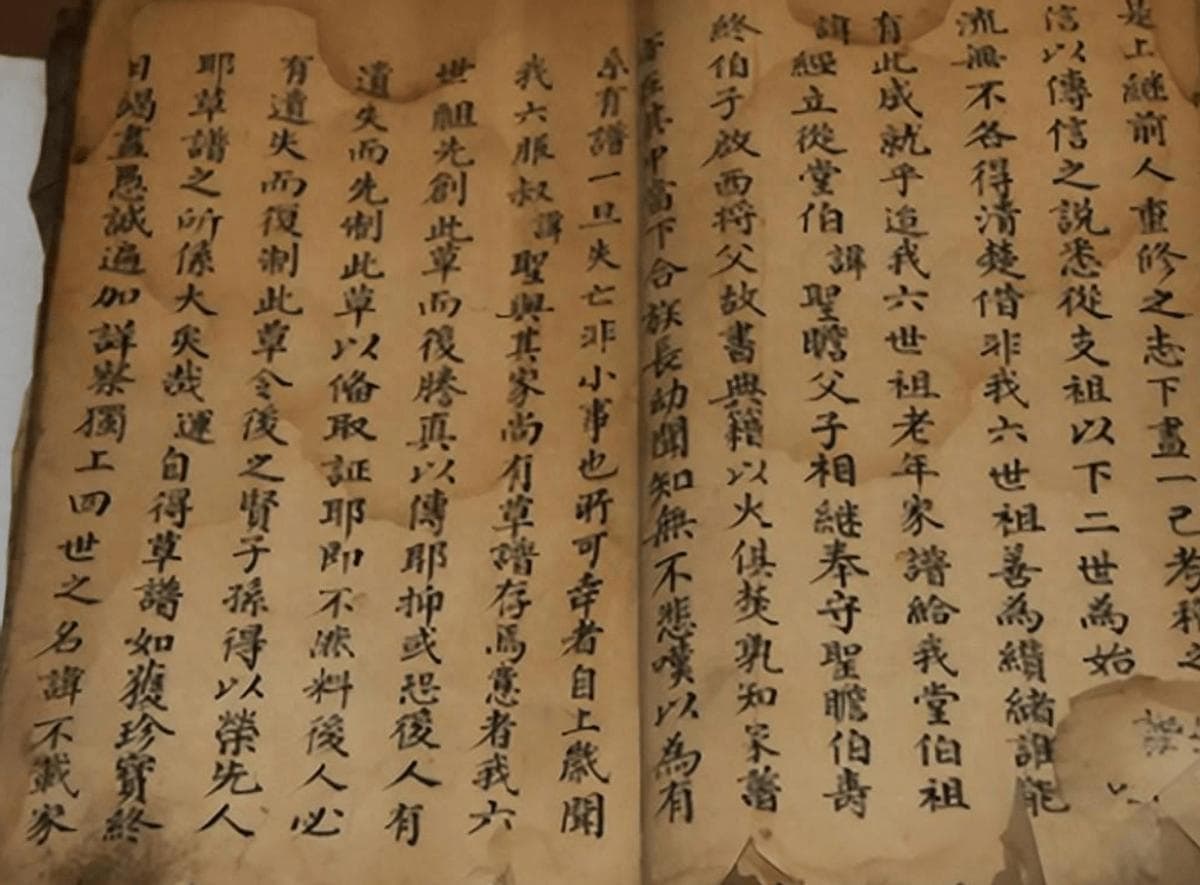 是上繼前人重修之志下盡一己考稽之
信以傳信之說悉從支祖以下二世為始
流無不各得清楚偕非我六世祖善為纘緒誰能
有此成就乎迨我六世祖老年家譜給我堂伯祖
諱經立從堂伯諱聖瞻父子相繼奉守聖瞻伯壽
終伯子啟西将父故書與籍以火俱焚孰知家譜
在其中富下合族長幼聞知無不悲嘆以為有
系有譜一旦失亡非小事也所可幸者自上嚴聞
我六服叔諱聖興其家尚有草譜存焉意者我六
世祖先創此草而後謄真以傳耶抑或恐後人有
遺失而先制此草以備取証耶即不然料後人必
有遺失而復制此草令後之賢子孫得以榮先人
耶草譜之所係大矣哉運自得草譜如獲珍寶終
日竭盡愚誠遍加詳察獨上四世之名諱不載家